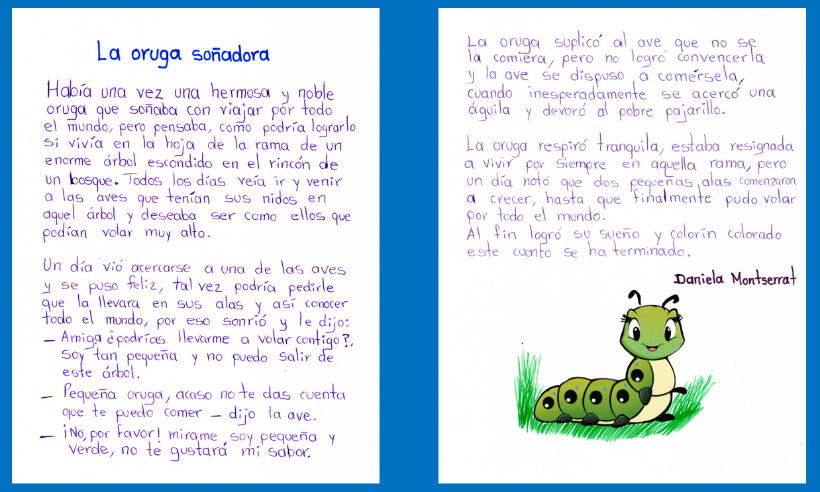 La oruga soñadora
Había una vez una hermosa y noble
oruga que soñaba con viajar por todo
el mundo, pero pensaba, como podría lograrlo
si vivía en la hoja de la rama de un
enorme árbol escondido en el rincón de
un bosque. Todos los días veía ir y venir
a las aves que tenían sus nidos en
aquel árbol y deseaba ser como ellos que
podían volar muy alto.
Un día vió acercarse a una de las aves
y se puso feliz, tal vez podría pedirle
que la llevara en sus alas y así conocer
todo el mundo, por eso sonrió y le dijo:
– Amiga ¿podrías llevarme a volar contigo?,
soy tan pequeña y no puedo salir de
este árbol.
– Pequeña oruga, acaso no te das cuenta
que te puedo comer – dijo la ave.
– ¡No, por favor! mirame, soy pequeña y
verde, no te gustará mi sabor.
La oruga suplicó al ave que no se
la comiera, pero no logró convencerla
y la ave se dispuso a comérsela,
cuando inesperadamente se acercó una
águila y devoró al pobre pajarillo.
La oruga respiró tranquila, estaba resignada
a vivir por siempre en aquella rama, pero
un día notó que dos pequeñas alas comenzaron
a crecer, hasta que finalmente pudo volar
por todo el mundo.
Al fin logró su sueño y colorín colorado
este cuento se ha terminado.
Daniela Montserrat